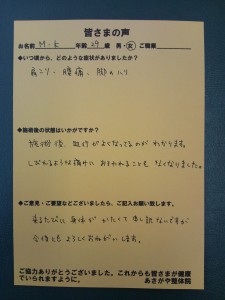 皆さまの声
お名前 M・K 年齢 29 歳 男・女 ご職業
●いつ頃から、どのような症状がありましたか？
肩こり・腰痛・脚のハリ
●施術後の状態はいかがですか？
施術後、血行がよくなってるのが わかります。
しびれるような痛みに おそわれることも なくなりました。
●ご意見・ご要望などございましたら、ご記入お願い致します。
来るたびに 身体が かたくて 申し訳ないですが
今後とも よろしくおねがい します。
ご協力ありがとうございました。これからも皆さまが健康
でいられますように。 あさがや整体院